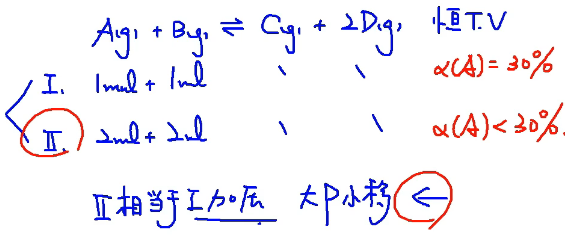 A(g) + B(g) ⇌ C(g) + 2D(g) 恒T.V
I. 1mol + 1mol \ \ α(A) = 30%
II. 2mol + 2mol \ \ α(A) < 30%.
II相当于I加压 大P小移 ←